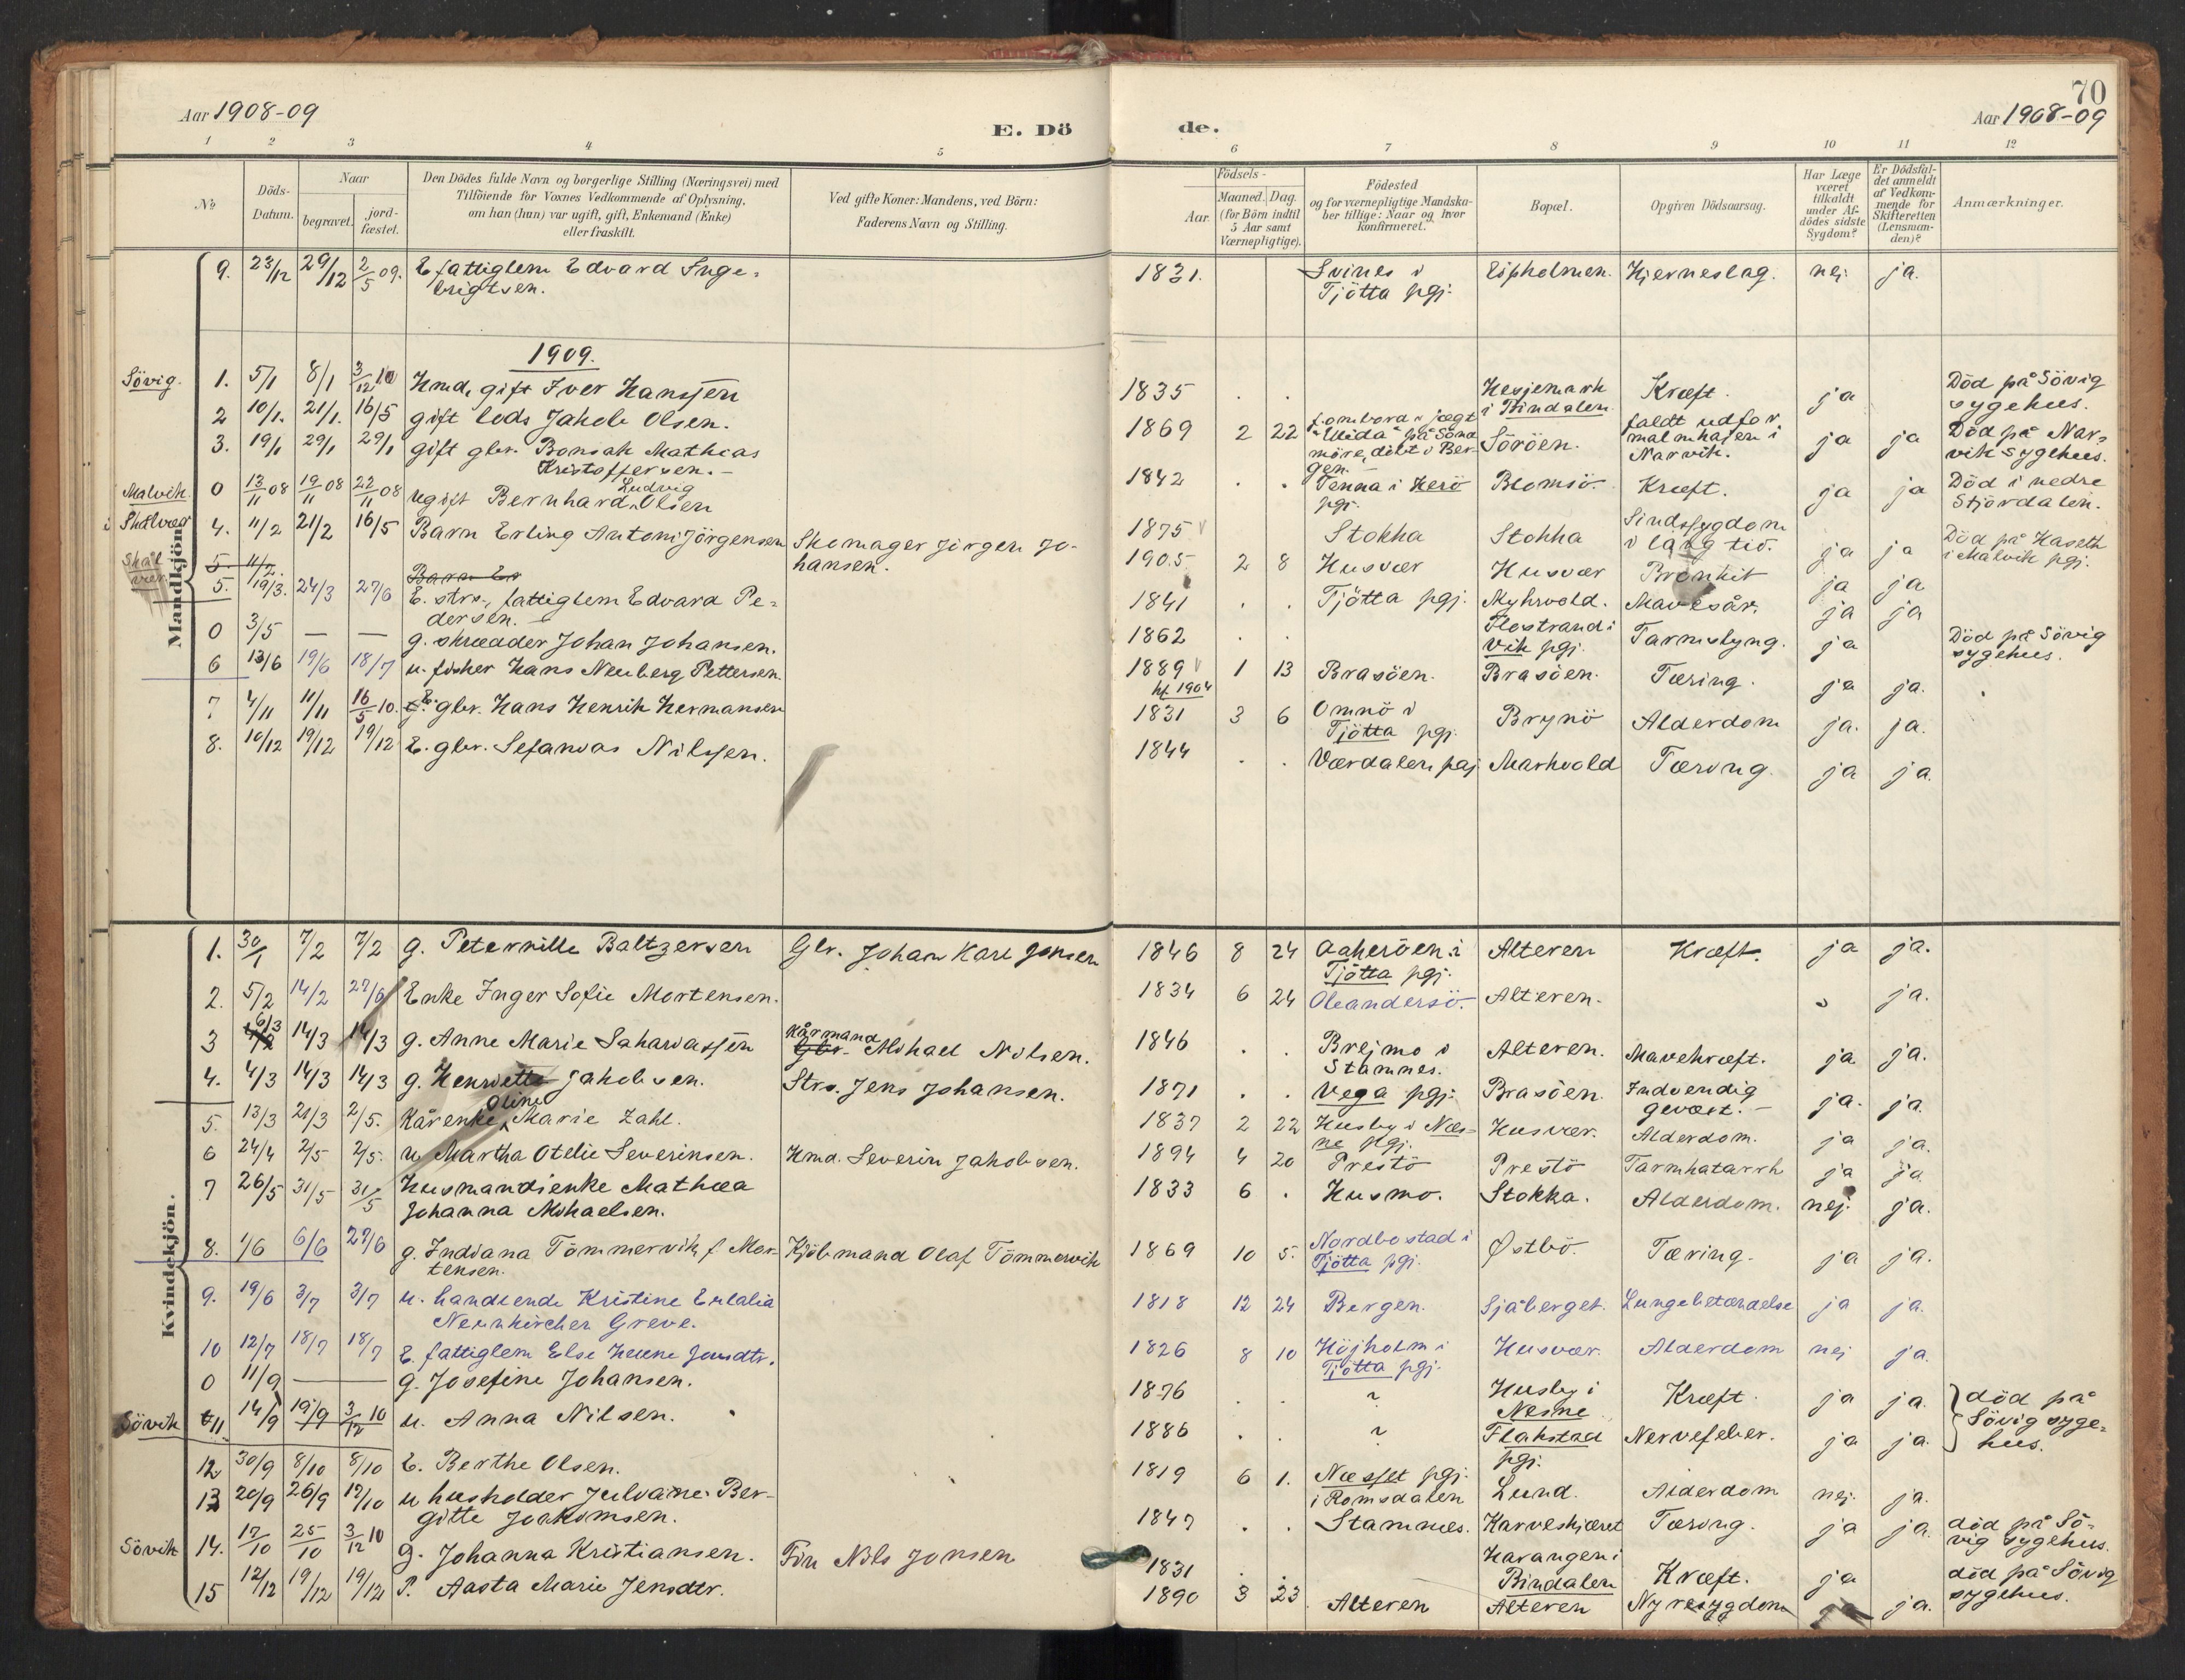 70
Aar 1908-09
E. Dö
de.
Aar 1908-09
1 2 3 4 5 6 7 8 9 10 11 12
No
Döds-
Datum.
Naar
begravet.
jord-
fæstet.
Den Dödes fulde Navn og borgerlige Stilling (Næringsvei) med
Tilföiende for Voxnes Vedkommende af Oplysning,
om han (hun) var ugift, gift, Enkemand (Enke)
eller fraskilt.
Ved gifte Koner: Mandens, ved Börn:
Faderens Navn og Stilling.
Födsels-
Aar.
Maaned. Dag.
(for Börn indtil
5 Aar samt
Værnepligtige).
Födested
og for værnepligtige Mandska-
ber tillige: Naar og hvor
konfirmeret.
Bopæl.
Opgiven Dödsaarsag.
Har Læge
været
tilkaldt
under Af-
dödes sidste
Sygdom?
Er Dödsfal-
det anmeldt
af Vedkom-
mende for
Skifteretten
(Lensman-
den)?
Anmærkninger.
Mandkjön.
9. 23/12 29/12 2/5 09. E fattiglem Edvard Inge-
brigtsen.
1909.
Sövig. 1. 5/1 8/1 3/12 10 Kmd, gift Iver Hanssen
2 10/1. 21/1. 16/5 gift lods Jakob Olsen.
3. 19/1 29/1 29/1 gift gbr. Bonsak Mathias
Kristoffersen.-
Ludvig
Malvik. 0 13/11 08 19/11 08 22/11 08 ugift Bernhard Olsen
i Skålvær 4. 11/2 21/2 16/5 Barn Erling Antoni Jörgensen Skomager Jörgen Jo-
hansen.
Skål-
vær. 5. 11/2. Barn Er
5. 19/3. 24/3 27/6 E. strs., fattiglem Edvard Pe-
dersen.
0 3/5 — — g. skrædder Johan Johansen.
6 13/6 19/6 18/7 u. fisker Hans Neuberg Pettersen.
7 4/11 11/11 16/5 10. E. gbr. Hans Henrik Hermansen
8. 10/12 19/12 19/12 E. gbr. Sefanias Nilssen.
1831. Svines i
Tjötta pgj. Espholmen. Hjerneslag. nej. ja.
1835 . . Hesjemark
i Bindalen Kræft. ja Död på Sövig
sygehus.
1869 2 22 ombord i jægt
"Ulida" på Sönd
möre, döbt i Ber-
gen. Söröen. faldt udfor
malmkajen i
Narvik. ja ja Död på Nar-
vik sygehus.
1842 . . Tenna i Herö
pgj. Blomsö. Kræft. ja ja Död i nedre
Stjördalen.
1875 Stokka Stokka Sindssygdom
i lang tid. ja ja Död på Haseth
i Malvik pgj.
1905. 2 8 Husvær Husvær Bronkit ja ja
1841 . . Tjötta pgj. Myhrvold. Mavesår. ja ja
1862 . . Flostrand i
Vik pgj. Tarmslyng. ja Död på Sövig
sygehus.
1889 1 13 Brasöen. Brasöen. Tæring. ja ja.
kf. 1904
1831 3 6 Omnö i
Tjötta pgj. Brynö Alderdom ja. ja.
1844 . . Værdalen pgj. Markvold Tæring. ja ja.
Kvindekjön.
1. 30/1 7/2 7/2 g. Peternille Baltzersen Gbr. Johan Karl Jonsen
2. 5/2 14/2 27/6 Enke Inger Sofie Mortensen.
3 6/3 14/3 14/3 g. Anne Marie Sakariassen Kårmand Gbr. Mikael Nilsen.
4. 4/3 14/3 14/3 g. Henriette Jakobsen. Strs. Jens Johansen.
Oline
5. 13/3 21/3 2/5. Kårenke Marie Zahl.
6 24/4 2/5 2/5. u Martha Otelie Severinsen. Kmd. Severin Jakobsen.
7 26/5 31/5 31/5 Husmandsenke Mathea
Johanna Mikaelsen.
8. 1/6 6/6 27/6 g. Indiana Tömmervik f. Mor-
tensen. Kjöbmand Olaf Tömmervik
9. 19/6 3/7 3/7 u. handlende Kristine Eulalia
Neunkirchen Greve.
10 12/7 18/7 18/7 E. fattiglem Else Helene Jensdtr.
0 11/9 — g. Josefine Johansen.
Sövik 11 14/9 19/9 3/12 10 u. Anna Nilsen.
12 30/9 8/10 8/10 E. Berthe Olsen.
13 20/9 26/9 17/10 u husholder Julvaine Ber-
gitte Joakimsen.
Sövik 14. 17/10 25/10 3/12 10 g. Johanna Kristiansen. Fin Nils Jonsen
15 12/12 19/12 19/12 P. Aasta Marie Jensdtr.
1846 8 24 Aakeröen i
Tjötta pgj. Alteren Kræft. ja ja.
1834 6 24 Oleandersö. Alteren. ja.
1846 . . Brejmo i
Stamnes. Alteren. Mavekræft. ja ja.
1871 . . Vega pgj. Brasöen. Indvendig
gevæxt.- ja. ja.
1837 2 22 Husby i Næs-
ne pgj. Husvær. Alderdom. ja ja.
1894 4 20 Prestö Prestö Tarmkatarrh ja ja.
1833 6 . Husmo. Stokka. Alderdom. nej. ja.
1869 10 5. Nordbostad i
Tjötta pgj. Østbö. Tæring. ja ja.
1818 12 24 Bergen. Sjåberget. Lungebetændelse ja ja.
1826 8 10 Höjholm i
Tjötta pgj. Husvær. Alderdom nej ja.
1876 . . ? Husby i
Nesne Kræft. ja ja. död på
Sövig syge-
hus.
1886 . . ? Flakstad
pgj. Nervefeber. ja ja.
1819 6 1. Næsset pgj.
i Romsdalen Lund. Alderdom nej. ja.
1847 . . Stamnes. Karveskjæret Tæring. ja ja. död på Sö-
vig sygehus.
1831 . . Harangen i
Bindalen Kræft. ja död på Sövig
sygehus.
1890 3 23 Alteren Alteren Nyresygdom ja ja.